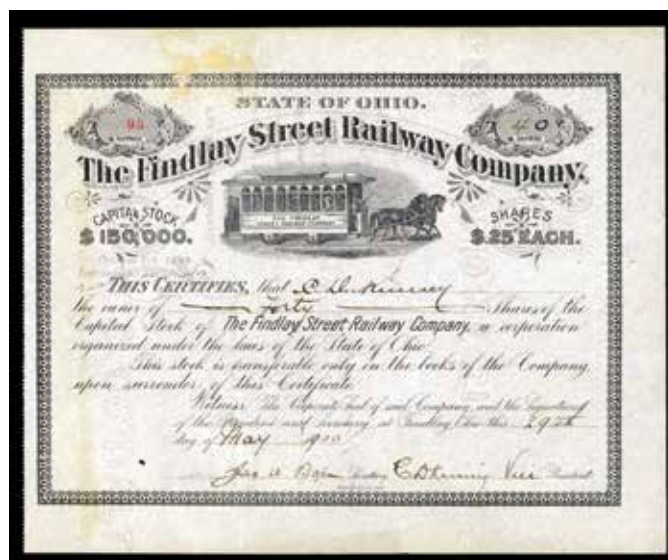 STATE OF OHIO.
93
40
The Findlay Street Railway Company.
CAPITAL STOCK
$150,000.
THE FINDLAY
STREET RAILWAY COMPANY
SHARES
$.25 EACH.
THIS CERTIFIES, that
the owner of Forty Shares of the
Capital Stock of The Findlay Street Railway Company, a corporation
organized under the laws of the State of Ohio
This stock is transferable only on the books of the Company
upon surrender of this Certificate
Witness The Corporate Seal of said Company and the Signatures
of the President and Secretary at Findlay, Ohio this 29th
day of May 1900
Vice President